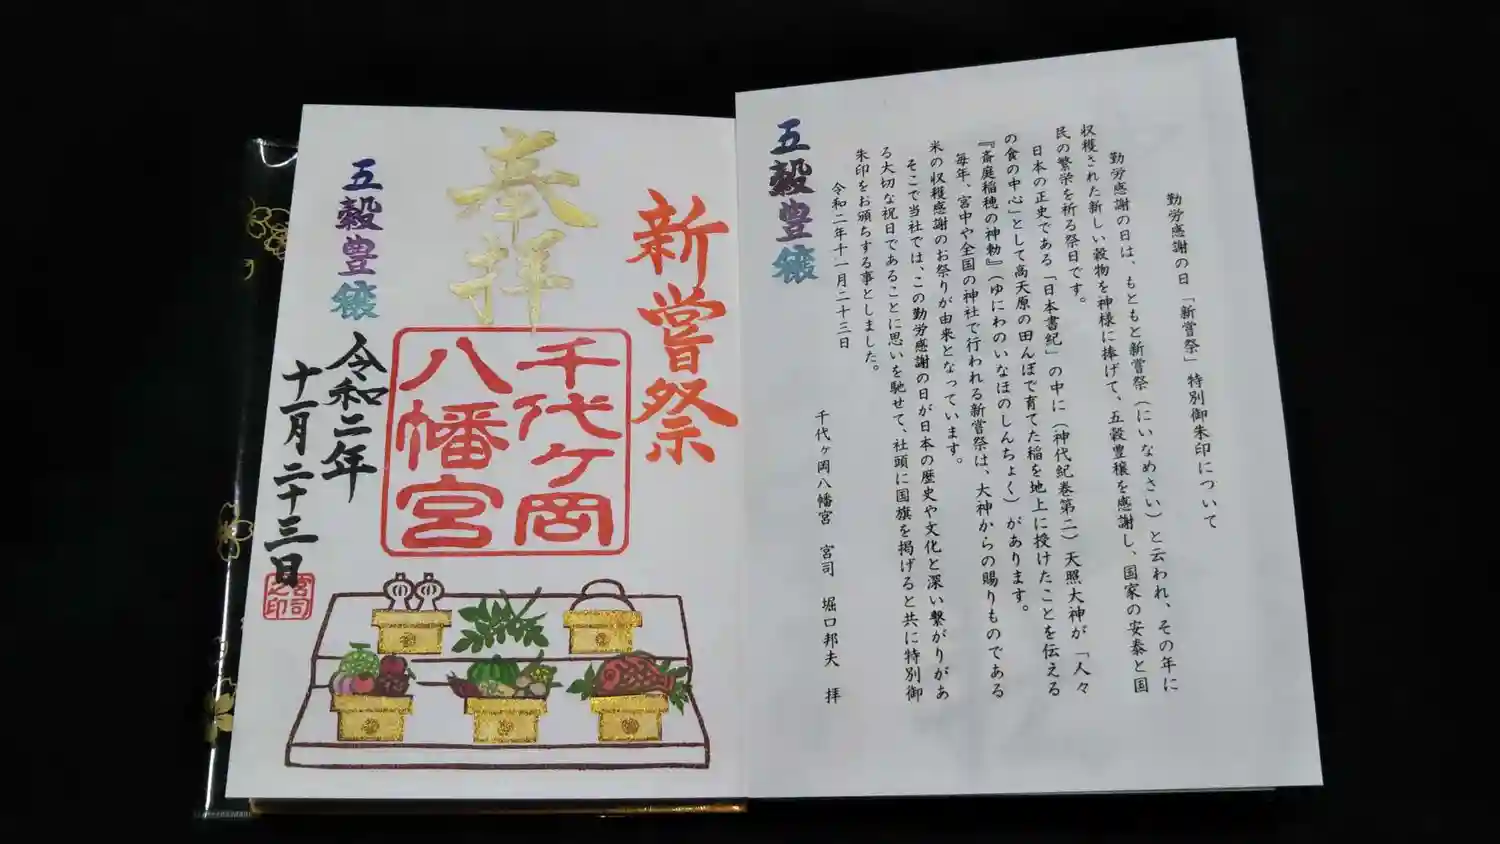 奉拝
新嘗祭
千代ヶ岡
八幡宮
五穀豊穣
令和二年
十一月二十三日
宮司
之印
勤労感謝の日「新嘗祭」特別御朱印について
勤労感謝の日は、もともと新嘗祭(にいなめさい)と云われ、その年に
収穫された新しい穀物を神様に捧げて、五穀豊穣を感謝し、国家の安泰と国
民の繁栄を祈る祭日です。
日本の正史である「日本書紀」の中に(神代紀巻第二)天照大神が「人々
の食の中心」として高天原の田んぼで育てた稲を地上に授けたことを伝える
『斎庭稲穂の神勅』(ゆにわのいなほのしんちょく)があります。
毎年、宮中や全国の神社で行われる新嘗祭は、大神からの賜りものである
米の収穫感謝のお祭りが由来となっています。
そこで当社では、この勤労感謝の日が日本の歴史や文化と深い繋がりがあ
る大切な祝日であることに思いを馳せて、社頭に国旗を掲げると共に特別御
朱印をお頒ちする事としました。
令和二年十一月二十三日
千代ヶ岡八幡宮 宮司 堀口邦夫 拝
五穀豊穣